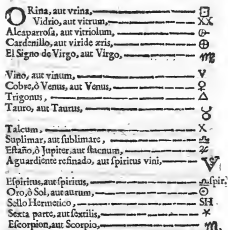 ORina, aut vrina,
Vidrio, aut vitrum,
Alcaparrosa, aut vitriolum,
Cardenillo, aut viride æris,
El Signo de Virgo, aut Virgo, ♍
Vino, aut vinum,
Cobre, ò Venus, aut Venus, ♀
Trigonus, △
Tauro, aut Taurus, ♉
Talcum, X
Suplimar, aut sublimare,
Estaño, ò Jupiter, aut stacnum, ♃
Aguardiente refinado, aut spiritus vini,
Espiritus, aut spiritus, spir.
Oro, ò Sol, aut aurum, ☉
Sello Hermetico, SH
Sexta parte, aut sextilis, ⚹
Escorpion, aut Scorpio, ♏